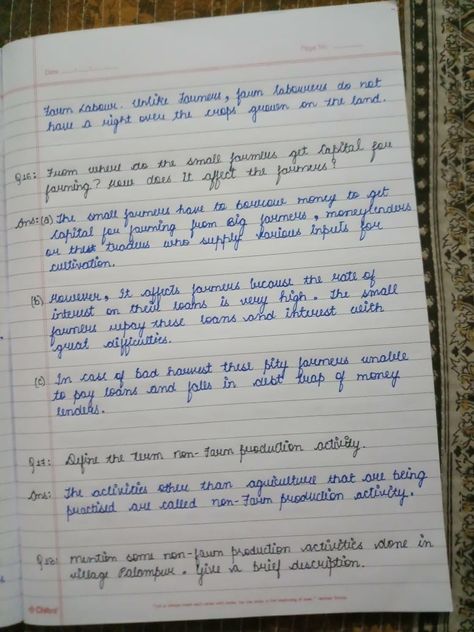 Page No.
Date
Farm Labour. Unlike Farmers, farm labourers do not
have a right over the crops grown on the land.
Q16: From where do the small farmers get Capital for
farming? How does it affect the farmers?
Ans:(a) The small farmers have to borrow money to get
capital for farming from Big farmers, moneylenders
or the traders who supply various inputs for
cultivation.
(b) However, It affects farmers because the rate of
interest on these loans is very high. The small
farmers repay these loans and interest with
great difficulties.
(c) In case of bad harvest these pity farmers unable
to pay loans and falls in debt trap of money
lenders.
Q17: Define the term non-Farm production activity.
Ans: The activities other than agriculture that are being
practised are called non-Farm production activity.
Q18: mention some non-farm production activities done in
village Palampur. Give a brief description.